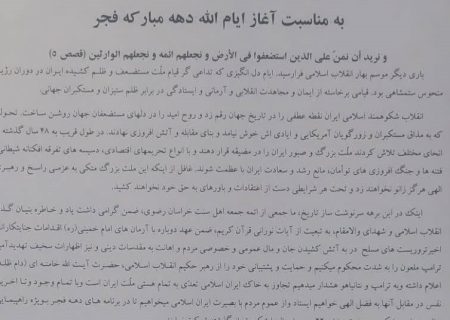 به مناسبت آغاز ایام الله دهه مبارکه فجر
و نرید أن نمنّ علی الذین استضعفوا في الأرض و نجعلهم ائمه و نجعلهم الوارثین (قصص ۵)
باری دیگر موسم بهار انقلاب اسلامی فرارسید. ایام دل انگیزی که تداعی گر قیام ملّت مستضعف و ظلم کشیده ایران در دوران رژیم
منحوس ستمشاهی بود. قیامی برخاسته از ایمان و مجاهدت انقلابی و آرمانی و ایستادگی در برابر ظلم ستیزان و مستکبران جهانی.
انقلاب شکوهمند اسلامی ایران نقطه عطفی را در تاریخ جهان رقم زد و روح امید را در دلهای مستضعفان جهان روشن ساخت. تحول
که به مذاق مستکبران و زورگویان آمریکایی و ایادی اش خوش نیامد و بنای مقابله و آتش افروزی نهادند. در طول قریب به ۴۸ سال گذشته
انحای مختلف تلاش کردند ملّت بزرگ و صبور ایران را در مضیقه قرار دهند و با انواع تحریمهای اقتصادی، دسیسه های تفرقه افکنانه شیطانی
فتنه ها و جنگ افروزی های توأمان، مانع رشد و سعادت ایران با عظمت شوند. غافل از اینکه این ملّت بزرگ متکی به عزمی راسخ و رهبری
الهی هرگز زانو نخواهند زد و تحت هر شرایطی دست از اعتقادات و باورهای به حق خود نخواهند کشید.
اینک در این برهه سرنوشت ساز تاریخ، ما جمعی از ائمه جمعه اهل سنت خراسان رضوی، ضمن گرامی داشت یاد و خاطره بنیان گذ
انقلاب اسلامی و شهدای والامقام، به تبعیت از آیات نورانی قرآن کریم، ضمن عهد دوباره با آرمان های امام خمینی (ره) اقدامات جنایتکارا
اخیر تروریست های مسلح در به آتش کشیدن جان و مال عمومی و خصوصی مردم و اهانت به مقدسات دینی و نیز اظهارات سخیف تهدیدآمیز
ترامپ ملعون را به شدت محکوم میکنیم و حمایت و پشتیبانی خود را از رهبر حکیم انقلاب اسلامی، حضرت آیت الله خامنه ای (دام ظله
اعلام داشته و به ترامپ و نتانیاهو هشدار میدهیم تجاوز به خاک ایران اسلامی تعدی به تمام هستی ملّت ایران است و با تمام وجود و تا آخرین
نفس در مقابل آنها به فضل الهی خواهیم ایستاد و از عموم مردم با بصیرت ایران اسلامی میخواهیم تا در برنامه های دهه فجر بویژه راهپیمایی